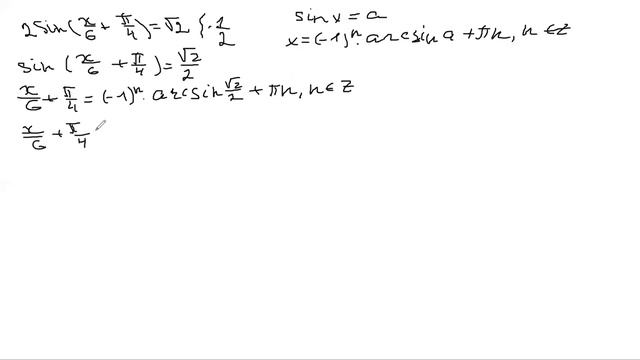 2sin(x/6 + π/4) = √2 {· 1/2
sin x = a
x = (-1)ⁿ · arcsin a + πn, n ∈ Z
sin (x/6 + π/4) = √2/2
x/6 + π/4 = (-1)ⁿ · arcsin √2/2 + πn, n ∈ Z
x/6 + π/4